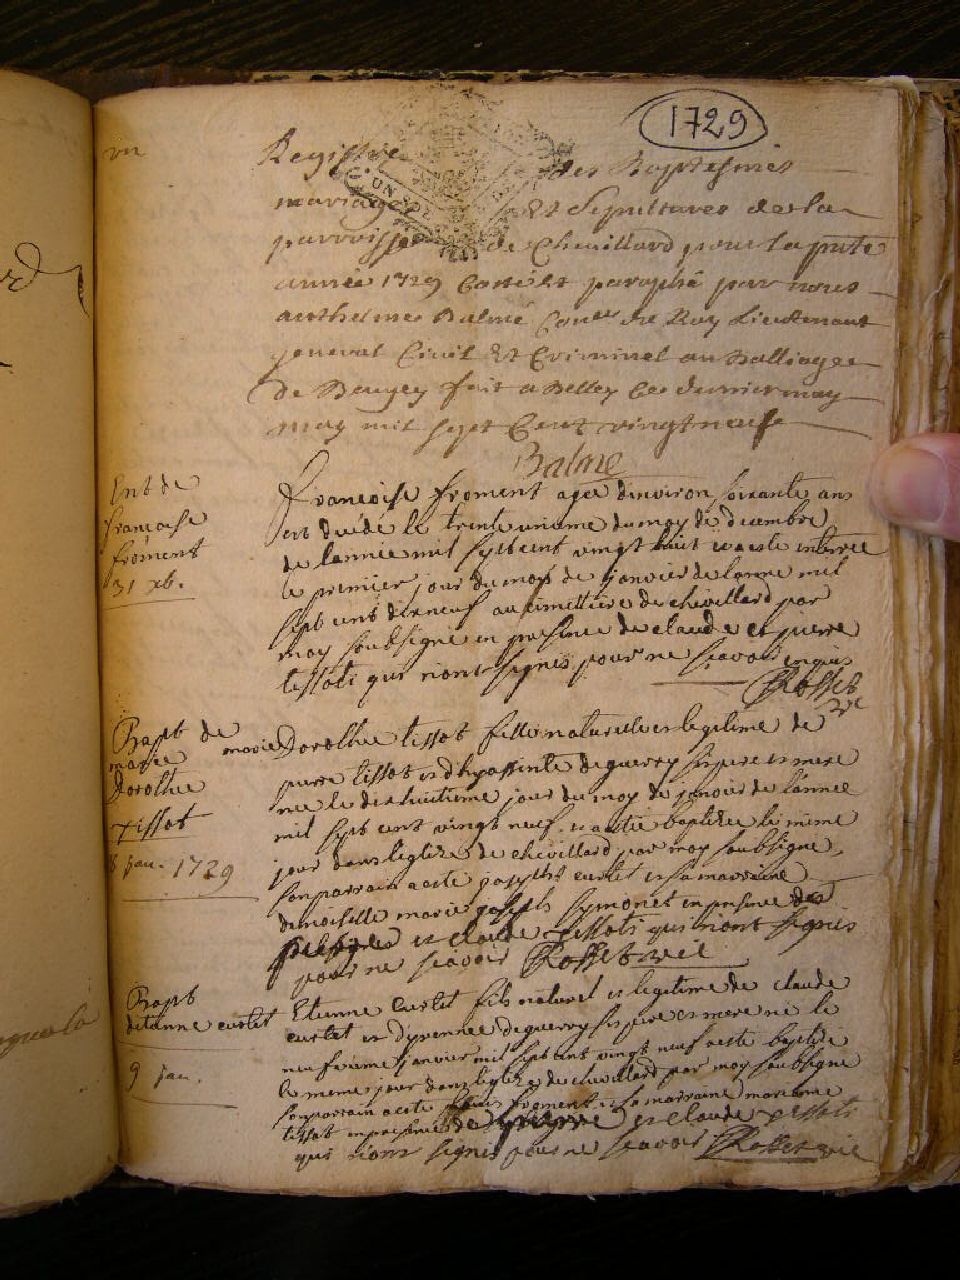 1729
vn
Registre des Baptesmes
mariages Et Sepultures de la
parroisse de Chevillard pour la pnte
année 1729 Cotté Et paraphé par nous
anthelme Balme Coner du Roy Lieutenant
general Civil Et Criminel au Balliage
de Baugey fait a Belley le dernier may
may mil sept Cent vingt neuf
Balme
UN SOL
Ent de
francoise
froment
31 xb.
francoise froment agee denviron soixante ans
est decede le trente unieme du moy de decembre
de lannee mil sept cent vingt huit et a este enterree
le premier jour du moy de janvier de lanne mil
sept cent dixneuf au cimettiere de chevillard par
moy soubsigne en presence de claude et pierre
tissots qui n'ont signés pour ne scavoir enquis
Rosset
vic
Bapt de
marie
Dorothee
tissot
8 jan. 1729
marie Dorothee tissot fille naturelle et legitime de
pierre tissot et d'hyassinte deguerry ses pere et mere
nee le dixhuitieme jour du moy de janvier de lannee
mil sept cent vingt neuf et a estie baptizee le meme
jour dans leglize de chevillard par moy soubsigne,
son parrain a este joseph curtet et sa marraine
demoiselle marie joseph symonet en presence de
et claude tissots qui n'ont signés
pour ne scavoir Rosset vic
Bapt
detienne curtet
9 jan.
Etienne Curtet fils naturel et legitime de claude
curtet et d'yennee deguerry ses pere et mere ne le
neufvieme janvier mil sept cent vingt neuf a este baptize
le meme jour dans leglize de chevillard par moy soubsigne
son parrain a este froment et sa marraine marianne
tissot en presence de pierre et claude tissots
qui n'ont signés pour ne scavoir Rosset vic